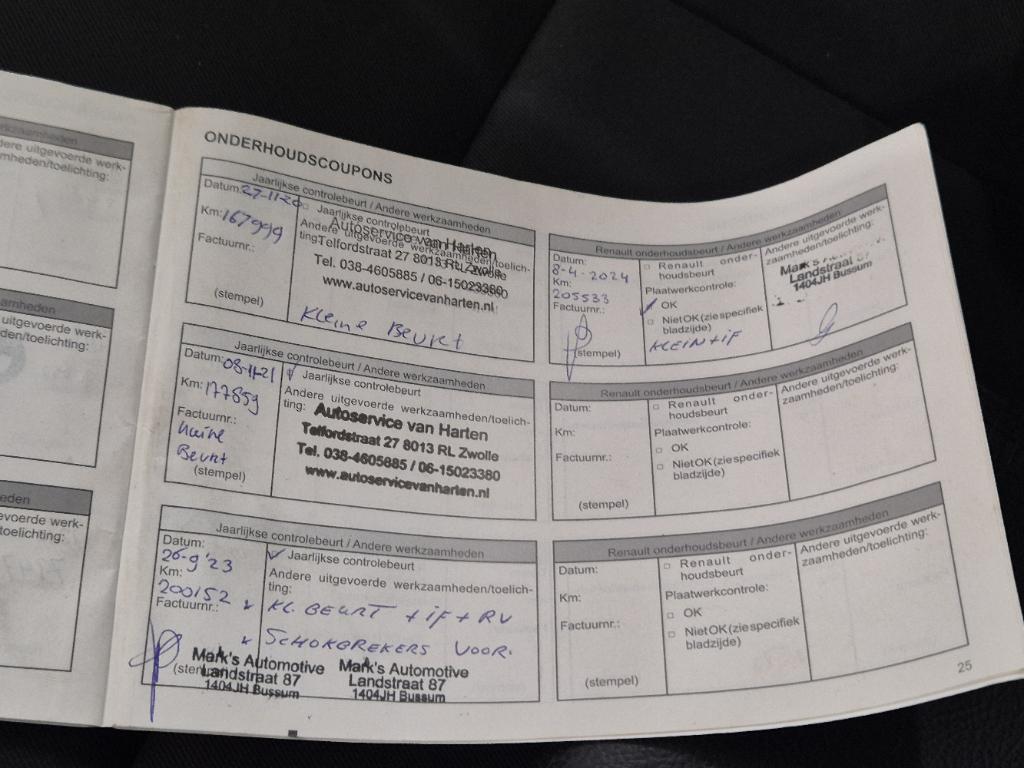 rkzaamheden
dere uitgevoerde werk-
mheden/toelichting:
amheden
uitgevoerde werk-
den/toelichting:
eden
voerde werk-
oelichting:
ONDERHOUDSCOUPONS
Jaarlijkse controlebeurt / Andere werkzaamheden
Datum: 27-11-20
Jaarlijkse controlebeurt
Km: 167999
Andere uitgevoerde werkzaamheden/toelich-
ting:
Factuurnr.:
Autoservice van Harten
Telfordstraat 27 8013 RL Zwolle
Tel. 038-4605885 / 06-15023380
www.autoservicevanharten.nl
(stempel)
Kleine Beurt
Jaarlijkse controlebeurt / Andere werkzaamheden
Datum: 08-11-21
Jaarlijkse controlebeurt
Km: 177859
Andere uitgevoerde werkzaamheden/toelich-
ting:
Factuurnr.:
Beurt
(stempel)
Autoservice van Harten
Telfordstraat 27 8013 RL Zwolle
Tel. 038-4605885 / 06-15023380
www.autoservicevanharten.nl
Jaarlijkse controlebeurt / Andere werkzaamheden
Datum:
26-9'23
Jaarlijkse controlebeurt
Km:
200152
Andere uitgevoerde werkzaamheden/toelich-
ting:
Factuurnr.:
KL. BEURT + iF + RV
SCHOKBREKERS VOOR.
Mark's Automotive
Landstraat 87
1404JH Bussum
Mark's Automotive
Landstraat 87
1404JH Bussum
Renault onderhoudsbeurt / Andere werkzaamheden
Datum:
8-4-2024
Km:
205533
Factuurnr.:
(stempel)
Renault onder-
houdsbeurt
Plaatwerkcontrole:
OK
Niet OK (zie specifiek
bladzijde)
KLEIN + iF
Andere uitgevoerde werk-
zaamheden/toelichting:
Landstraat 87
1404JH Bussum
Renault onderhoudsbeurt / Andere werkzaamheden
Datum:
Km:
Factuurnr.:
(stempel)
Renault onder-
houdsbeurt
Plaatwerkcontrole:
OK
Niet OK (zie specifiek
bladzijde)
Andere uitgevoerde werk-
zaamheden/toelichting:
Renault onderhoudsbeurt / Andere werkzaamheden
Datum:
Km:
Factuurnr.:
(stempel)
Renault onder-
houdsbeurt
Plaatwerkcontrole:
OK
Niet OK (zie specifiek
bladzijde)
Andere uitgevoerde werk-
zaamheden/toelichting:
25